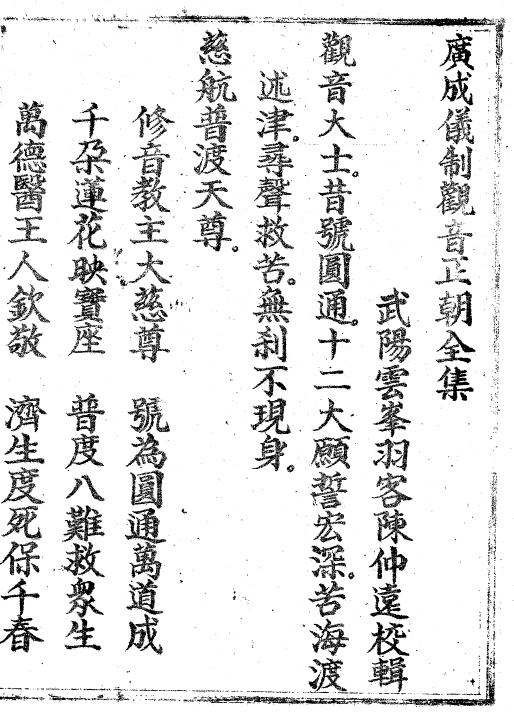 廣成儀制觀音正朝全集
武陽雲峯羽客陳仲遠校輯
觀音大士。昔號圓通。十二大願誓宏深。苦海渡
述津。尋聲救苦。無刹不現身。
慈航普渡天尊。
修音教主大慈尊　號為圓通萬道成
千朶蓮花映寶座　普度八難救衆生
萬德醫王人欽敬　濟生度死保千春